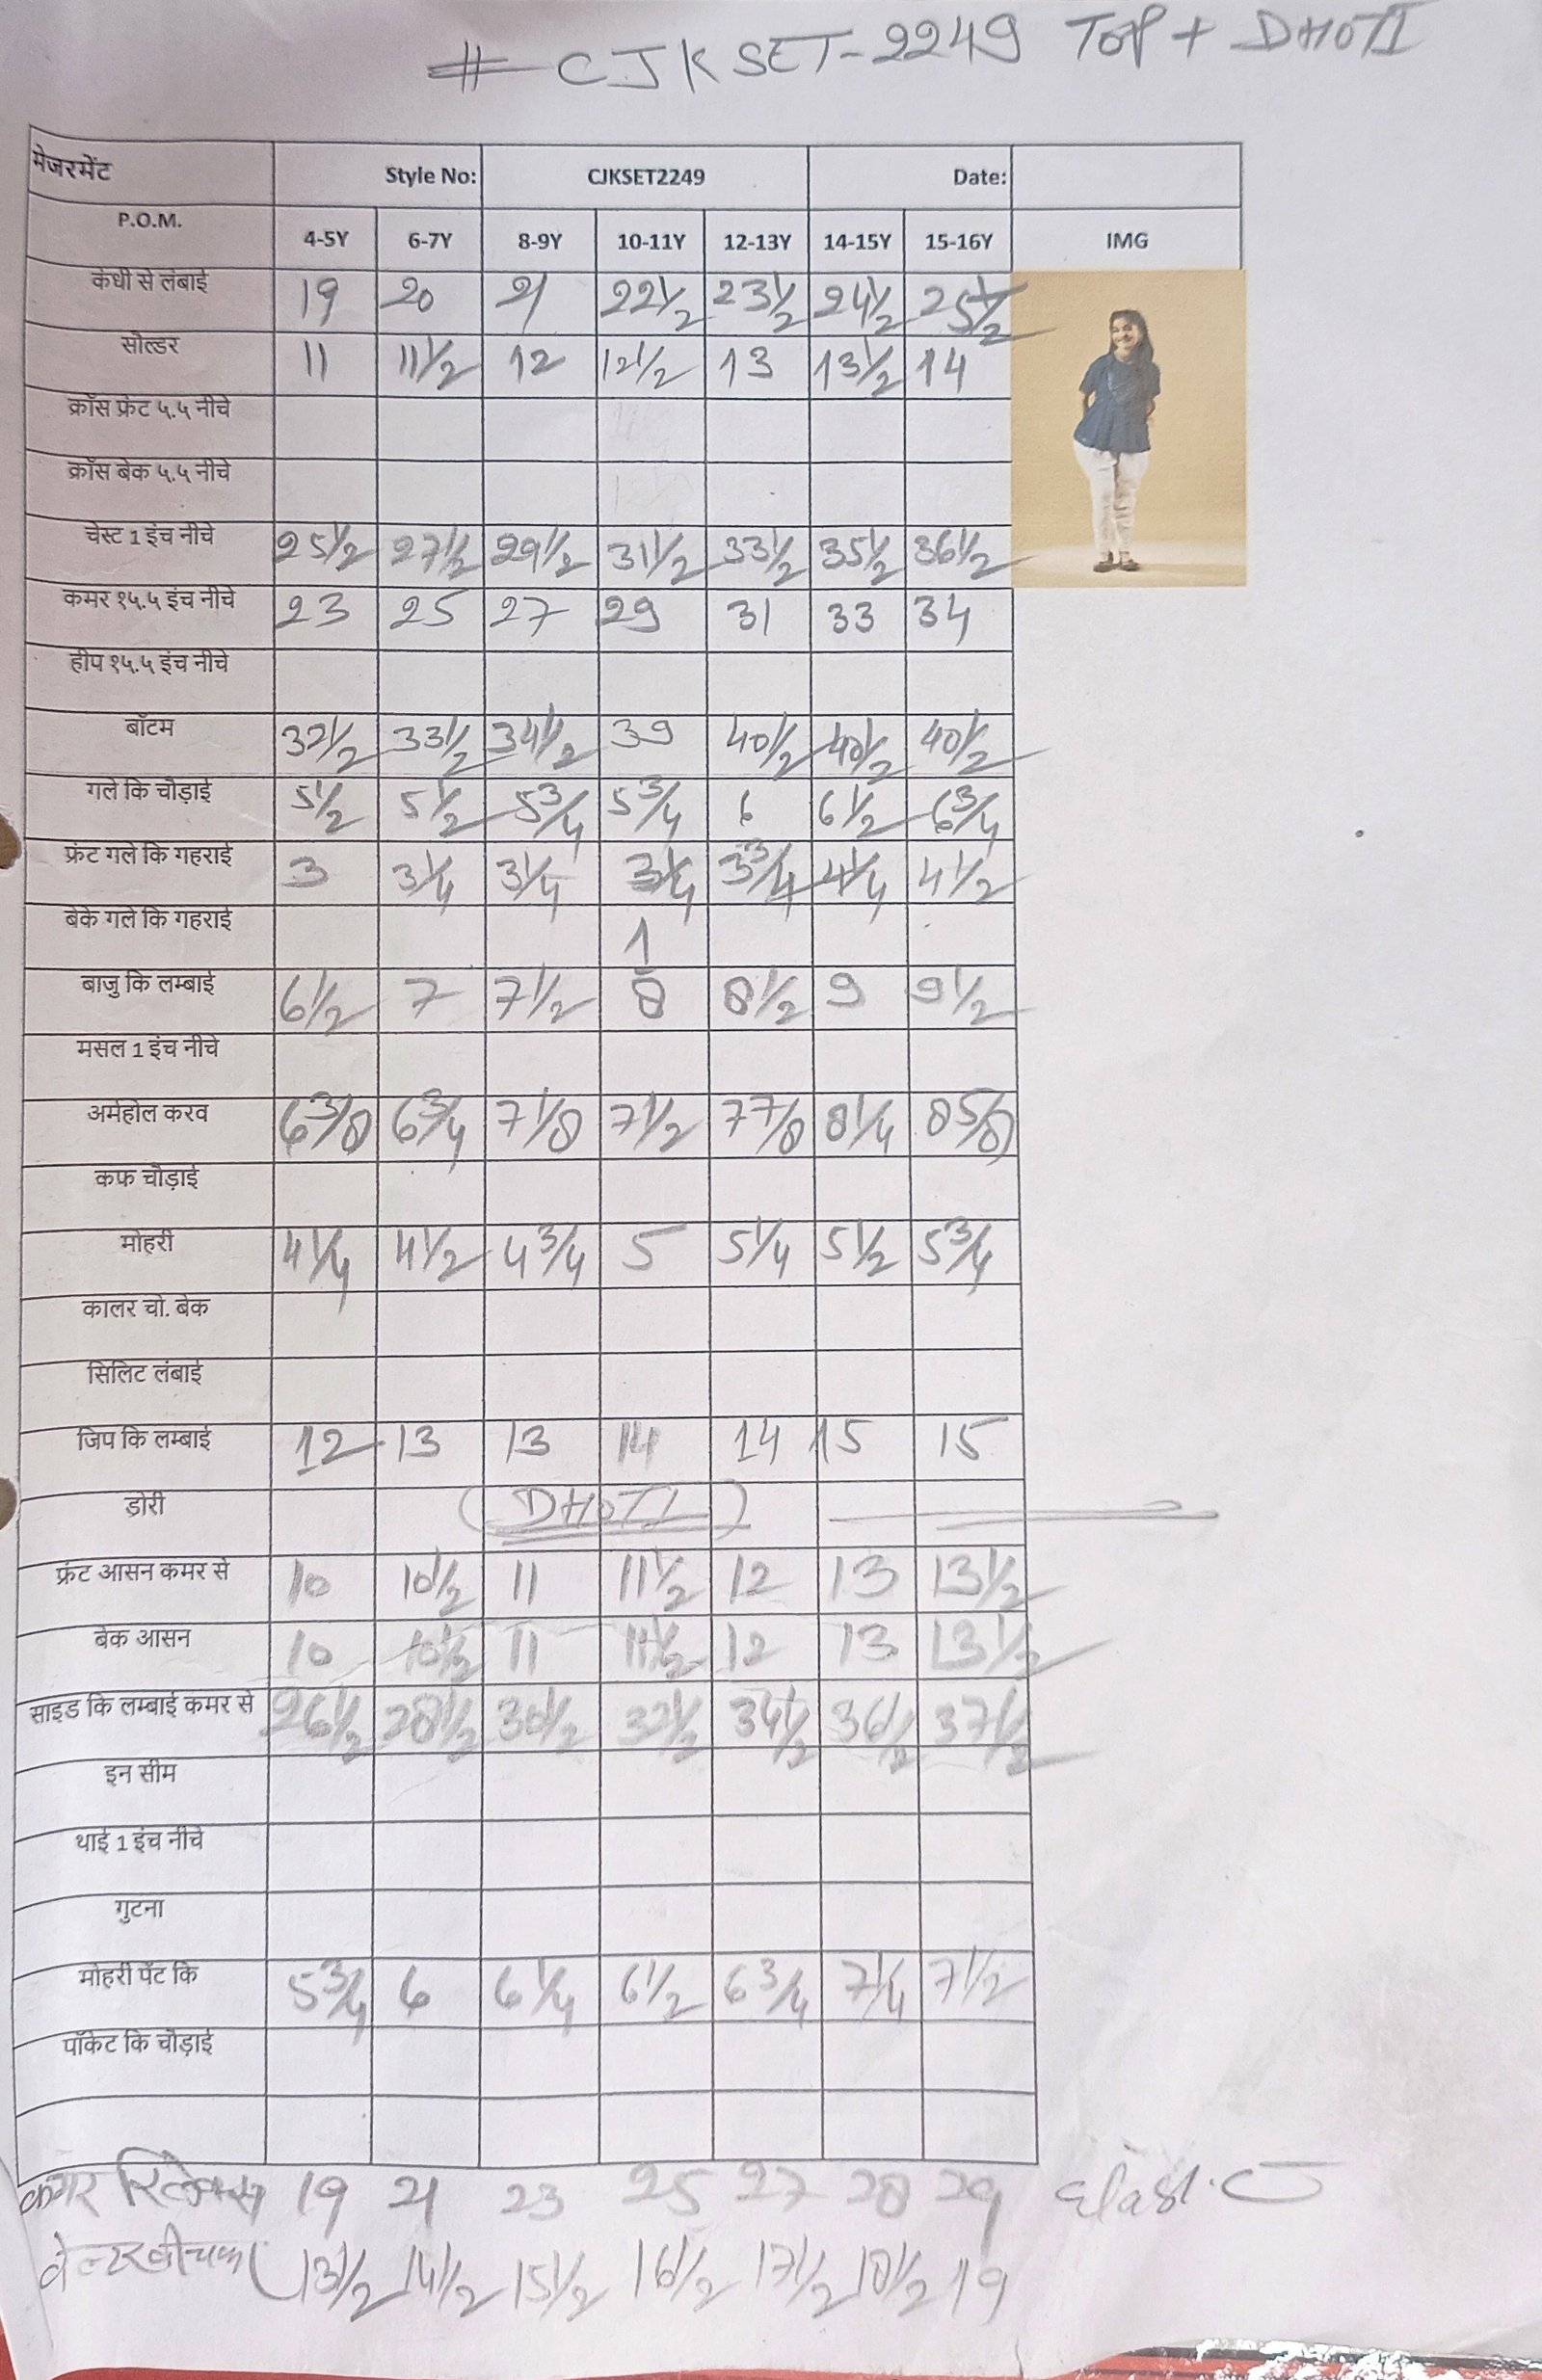 # CJKSET-2249 TOP + DHOTI
मेजरमेंट Style No: CJKSET2249 Date:
P.O.M. 4-5Y 6-7Y 8-9Y 10-11Y 12-13Y 14-15Y 15-16Y IMG
कंधी से लंबाई 19 20 21 22 1/2 23 1/2 24 1/2 25 1/2
सोल्डर 11 11 1/2 12 12 1/2 13 13 1/2 14
क्रॉस फ्रंट ५.५ नीचे
क्रॉस बेक ५.५ नीचे
चेस्ट 1 इंच नीचे 25 1/2 27 1/2 29 1/2 31 1/2 33 1/2 35 1/2 36 1/2
कमर १५.५ इंच नीचे 23 25 27 29 31 33 34
हीप १५.५ इंच नीचे
बॉटम 32 1/2 33 1/2 34 1/2 39 40 1/2 40 1/2 40 1/2
गले कि चौड़ाई 5 1/2 5 1/2 5 3/4 5 3/4 6 6 1/2 6 3/4
फ्रंट गले कि गहराई 3 3 1/4 3 1/4 3 1/4 3 3/4 4 1/4 4 1/2
बेके गले कि गहराई 1
बाजु कि लम्बाई 6 1/2 7 7 1/2 8 8 1/2 9 9 1/2
मसल 1 इंच नीचे
अर्महोल करव 6 3/8 6 3/4 7 1/8 7 1/2 7 7/8 8 1/4 8 5/8
कफ चौड़ाई
मोहरी 4 1/4 4 1/2 4 3/4 5 5 1/4 5 1/2 5 3/4
कालर चो. बेक
सिलिट लंबाई
जिप कि लम्बाई 12 13 13 14 14 15 15
डोरी (DHOTI)
फ्रंट आसन कमर से 10 10 1/2 11 11 1/2 12 13 13 1/2
बेक आसन 10 10 1/2 11 11 1/2 12 13 13 1/2
साइड कि लम्बाई कमर से 26 1/2 28 1/2 30 1/2 32 1/2 34 1/2 36 1/2 37 1/2
इन सीम
थाई 1 इंच नीचे
गुटना
मोहरी पेंट कि 5 3/4 6 6 1/4 6 1/2 6 3/4 7 1/4 7 1/2
पॉकेट कि चौड़ाई
कमर रिलेक्स 19 21 23 25 27 28 29
13 1/2 14 1/2 15 1/2 16 1/2 17 1/2 18 1/2 19